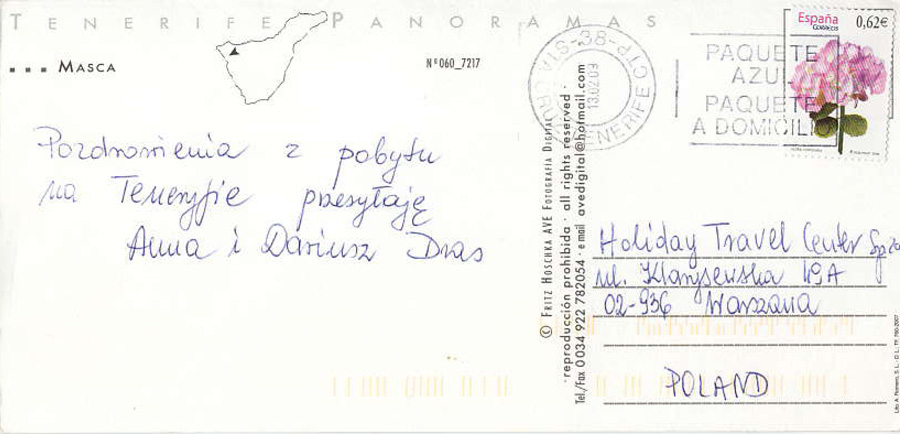 TENERIFE PANORAMAS
MASCA
Nº 060_7217
Pozdrowienia z pobytu
na Teneryfie przesyłają
Anna i Dariusz Dras
© FRITZ HOSCHKA AVE FOTOGRAFIA DIGITAL
· reproducción prohibida · all rights reserved ·
Tel./Fax 0034 922 782054 · e mail avedigital@hotmail.com
38-PTO
TENERIFE
13.02.09
PAQUETE
AZUL
PAQUETE
A DOMICILIO
España
CORREOS
0,62€
Holiday Travel Center Sp. zoo
ul. Klarysewska 49A
02-936 Warszawa
POLAND